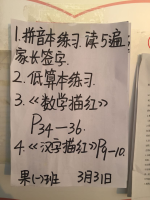 1.拼音本练习.读5遍
家长签字.
2.低算本练习.
3.《数学描红》
P34—36.
4.《汉字描红》P9-10.
果(一)班 3月31日